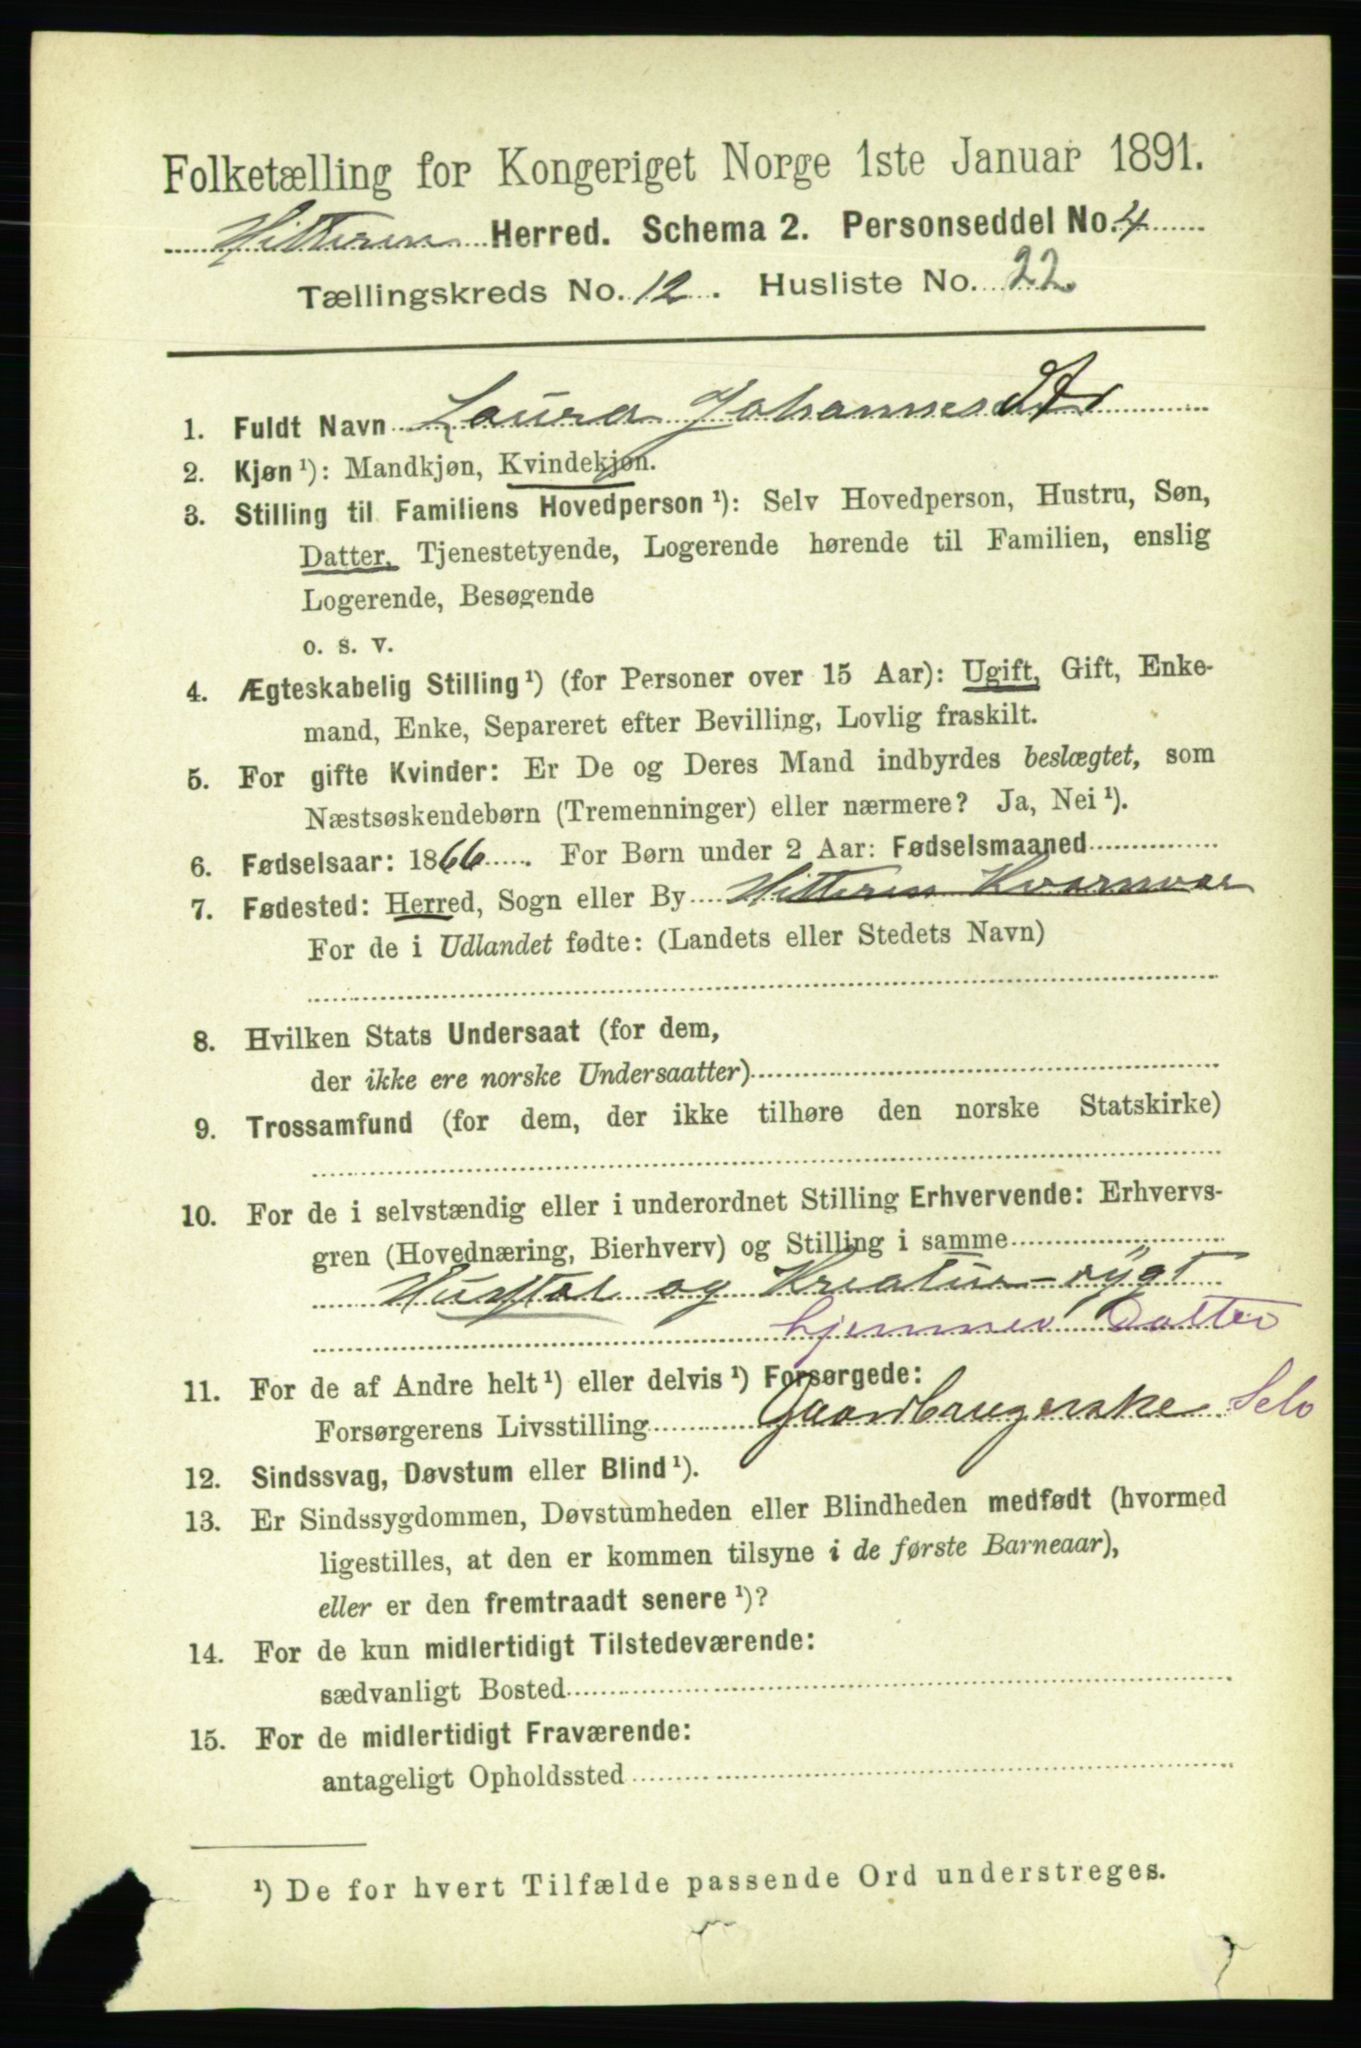 Folketælling for Kongeriget Norge 1ste Januar 1891.
Hitteren Herred. Schema 2. Personseddel No. 4
Tællingskreds No. 12. Husliste No. 22
1. Fuldt Navn Laura Johannesdtr
2. Kjøn ¹): Mandkjøn, Kvindekjøn.
3. Stilling til Familiens Hovedperson ¹): Selv Hovedperson, Hustru, Søn,
Datter, Tjenestetyende, Logerende hørende til Familien, enslig
Logerende, Besøgende
o. s. v.
4. Ægteskabelig Stilling ¹) (for Personer over 15 Aar): Ugift, Gift, Enke-
mand, Enke, Separeret efter Bevilling, Lovlig fraskilt.
5. For gifte Kvinder: Er De og Deres Mand indbyrdes beslægtet, som
Næstsøskendebørn (Tremenninger) eller nærmere? Ja, Nei ¹).
6. Fødselsaar: 1866. For Børn under 2 Aar: Fødselsmaaned
7. Fødested: Herred, Sogn eller By Hitteren Kvarnvær
For de i Udlandet fødte: (Landets eller Stedets Navn)
8. Hvilken Stats Undersaat (for dem,
der ikke ere norske Undersaatter)
9. Trossamfund (for dem, der ikke tilhøre den norske Statskirke)
10. For de i selvstændig eller i underordnet Stilling Erhvervende: Erhvervs-
gren (Hovednæring, Bierhverv) og Stilling i samme
Husstel og Kreatur-rygt
hjemmev Datter
11. For de af Andre helt ¹) eller delvis ¹) Forsørgede:
Forsørgerens Livsstilling Gaardbrugerske Selv
12. Sindssvag, Døvstum eller Blind ¹).
13. Er Sindssygdommen, Døvstumheden eller Blindheden medfødt (hvormed
ligestilles, at den er kommen tilsyne i de første Barneaar),
eller er den fremtraadt senere ¹)?
14. For de kun midlertidigt Tilstedeværende:
sædvanligt Bosted
15. For de midlertidigt Fraværende:
antageligt Opholdssted
¹) De for hvert Tilfælde passende Ord understreges.